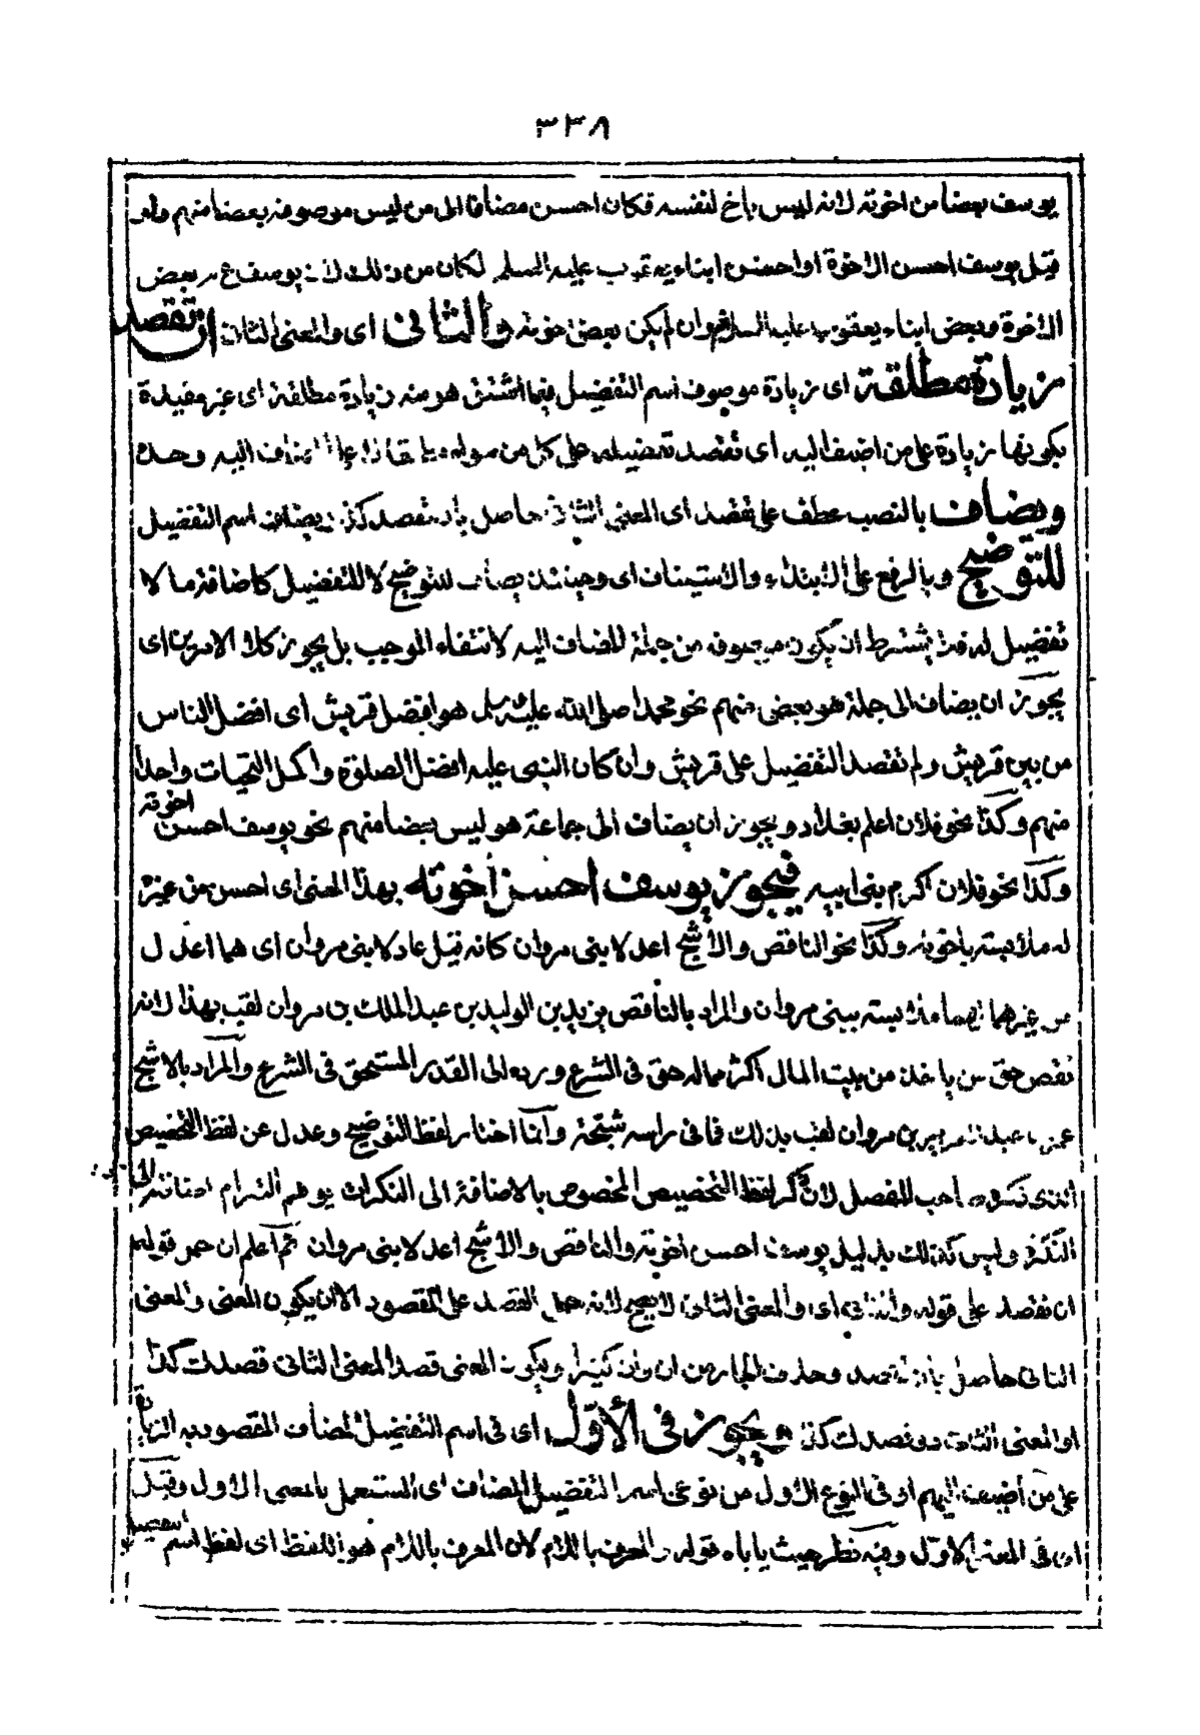 ٣٣٨
يوسف بعضا من اخوته لانه ليس باخ لنفسه فكان احسن مضافا الى من ليس موصوفه بعضا منهم ولو
قيل يوسف احسن الاخوة او احسن ابناء يعقوب عليه السلم لكان من ذلك لان يوسف ع م بعض
الاخوة وبعض ابناء يعقوب عليه السلام وان لم يكن بعض اخوته والثانى اى والمعنى الثانى ان تقصد
زيادة مطلقة اى زيادة موصوف اسم التفضيل فيما اشتق هو منه زيادة مطلقة اى غير مقيدة
بكونها زيادة على من اضيف اليه اى تقصد تفضيله على كل من سواه مطلقا لا على المضاف اليه وحده
ويضاف بالنصب عطف على تقصد اى المعنى الثانى حاصل بان تقصد كذا ويضاف اسم التفضيل
للتوضيح وبالرفع على الابتداء والاستيناف اى وحينئذ يضاف للتوضيح لا للتفضيل كاضافة ما لا
تفضيل له فلا يشترط ان يكون موصوفه من جملة المضاف اليه لانتفاء الموجب بل يجوز كلا الامرين اى
يجوز ان يضاف الى جملة هو بعض منهم نحو محمد صلى الله عليه وسلم هو افضل قريش اى افضل الناس
من بين قريش ولم تقصد التفضيل على قريش وان كان النبى عليه افضل الصلوة واكمل التحيات واحدا
منهم وكذا نحو فلان اعلم بغداد ويجوز ان يضاف الى جماعة هو ليس بعضا منهم نحو يوسف احسن اخوته
وكذا نحو فلان اكرم بنى ابيه فيجوز يوسف احسن اخوته بهذا المعنى اى احسن من غيره
له ملابسة باخوته وكذا نحو الناقص والاشج اعدلا بنى مروان كانه قيل عادلا بنى مروان اى هما اعدل
من غيرهما لهما ملابسة ببنى مروان والمراد بالناقص يزيد بن الوليد بن عبد الملك بن مروان لقب بهذا لانه
نقص حق من ياخذ من بيت المال اكثر مما له حق فى الشرع ورده الى القدر المستحق فى الشرع والمراد بالاشج
عمر بن عبد العزيز بن مروان لقب بذلك لما فى راسه شجة وانما اختار لفظ التوضيح وعدل عن لفظ التخصيص
الذى ذكره صاحب المفصل لان ذكر لفظ التخصيص المخصوص بالاضافة الى النكرات يوهم التزام اضافته الى
النكرة وليس كذلك بدليل يوسف احسن اخوته والناقص والاشج اعدلا بنى مروان ثم اعلم ان حمل قوله
ان تقصد على قوله والثانى اى والمعنى الثانى لا يصح لانه حمل القصد على المقصود الا ان يكون المعنى والمعنى
الثانى حاصل بان تقصد وحذف الجار من ان وان كثيرا ويكون المعنى قصد المعنى الثانى قصدك كذا
او المعنى الثانى ذو قصدك كذا ويجوز فى الاول اى فى اسم التفضيل المضاف المقصود به الزيادة
على من أضيف اليهم او فى النوع الاول من نوعى اسم التفضيل المضاف اى المستعمل بالمعنى الاول وقيل
اى فى المعنى الاول وفيه نظر حيث ياباه قوله والمعرف باللام لان المعرف باللام هو اللفظ اى لفظ اسم التفضيل